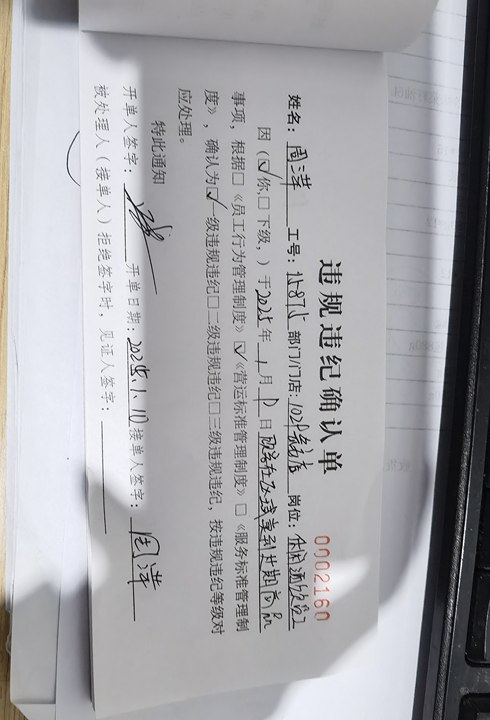 违规违纪确认单
0002160
姓名：周萍 工号：15875 部门/门店：102 店 岗位：休闲
因（☑你，□下级，）于2025年1月 日
事项，根据□《员工行为管理制度》☑《营运标准管理制度》□《服务标准管理制
度》，确认为☑一级违规违纪□二级违规违纪□三级违规违纪，按违规违纪等级对
应处理。
特此通知
开单人签字： 开单日期：2025.1.10 接单人签字：周萍
被处理人（接单人）拒绝签字时，见证人签字：